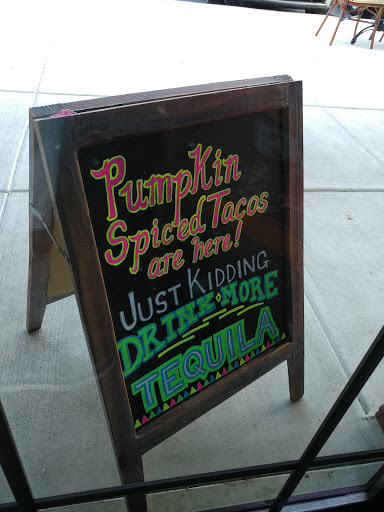 PumpKin
Spiced Tacos
are here!
JUST KIDDING
DRINK MORE
TEQUILA